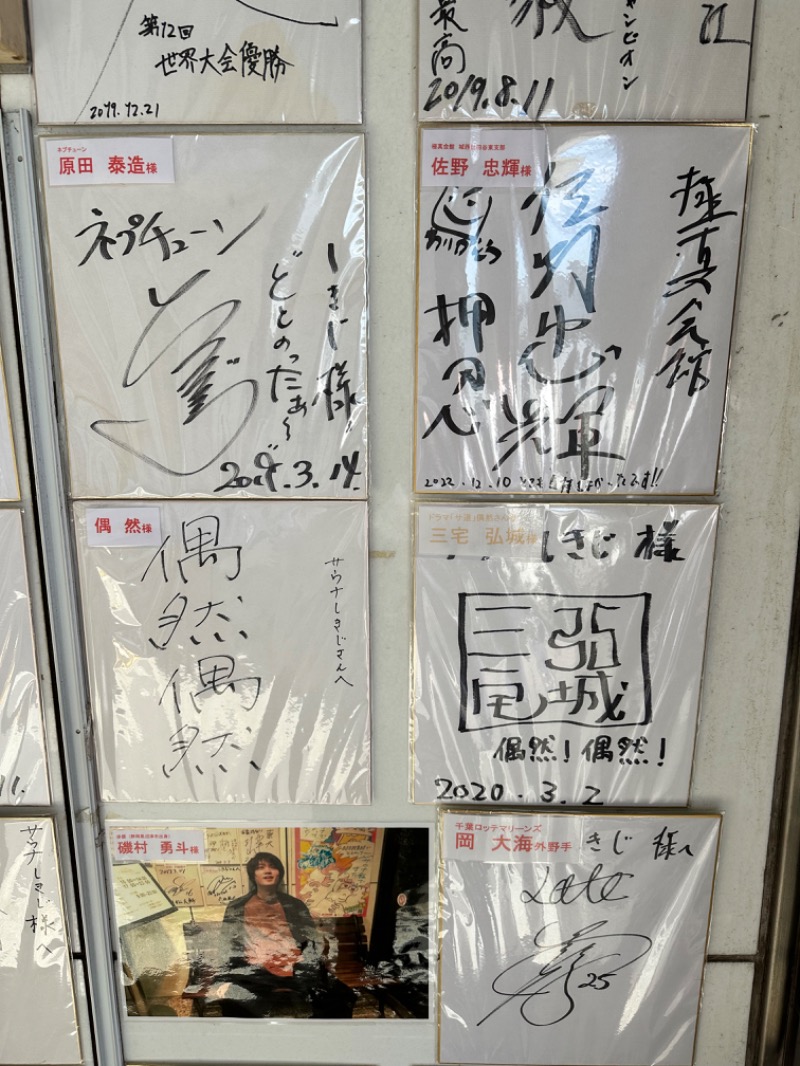 第12回
世界大会優勝
2019.12.21
最高
ャンピオン
2019.8.11
ネプチューン
原田 泰造様
ネプチューン
しきじ様
ととのったぁ〜
2019.3.14.
佐野 忠輝様
極真会館
佐野忠輝
ありがとう
押忍
2022.12.10
偶 然様
サウナしきじさんへ
偶然偶然
三宅 弘城様
しきじ様
三宅弘城
偶然!偶然!
2020.3.2
サウナしきじ様へ
磯村 勇斗様
千葉ロッテマリーンズ
岡 大海外野手
きじ 様へ
25